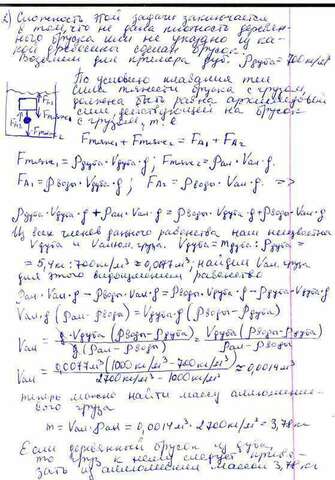 2) Сложность этой задачи заключается
в том, что не дана плотность деревян-
ного бруска или не указано из ка-
кой древесины сделан брусок.
Возьмем для примера дуб. ρдуба=700 кг/м³
По условию плавания тел
сила тяжести бруска с грузом,
должна быть равна архимедовой
силе, действующей на брусок
с грузом, т.е
FA1
FA2
Fтяж1
Fтяж2
Fтяж1 + Fтяж2 = FA1 + FA2
Fтяж1 = ρдуба·Vдуба·g; Fтяж2 = ρал·Vал·g.
FA1 = ρводы·Vдуба·g; FA2 = ρводы·Vал·g. =>
ρдуба·Vдуба·g + ρал·Vал·g = ρводы·Vдуба·g + ρводы·Vал·g
Из всех членов данного равенства нам неизвестны
Vдуба и Vалюм.груза. Vдуба = mдуба : ρдуба =
= 5,4 кг : 700 кг/м³ ≈ 0,0077 м³; найдем Vал. груза
для этого видоизменим равенство
ρал·Vал·g − ρводы·Vал·g = ρводы·Vдуба·g − ρдуба·Vдуба·g
Vал·g (ρал − ρводы) = Vдуба·g (ρводы − ρдуба)
Vал = g·Vдуба (ρводы − ρдуба) / g (ρал − ρводы) = Vдуба (ρводы − ρдуба) / ρал − ρводы
Vал = 0,0077 м³ (1000 кг/м³ − 700 кг/м³) / 2700 кг/м³ − 1000 кг/м³ ≈ 0,0014 м³
теперь можно найти массу алюминие-
вого груза
m = Vал·ρал = 0,0014 м³ · 2700 кг/м³ = 3,78 кг
Если деревянный брусок из дуба,
то груз к нему следует привя-
зать из алюминия массой 3,78 кг